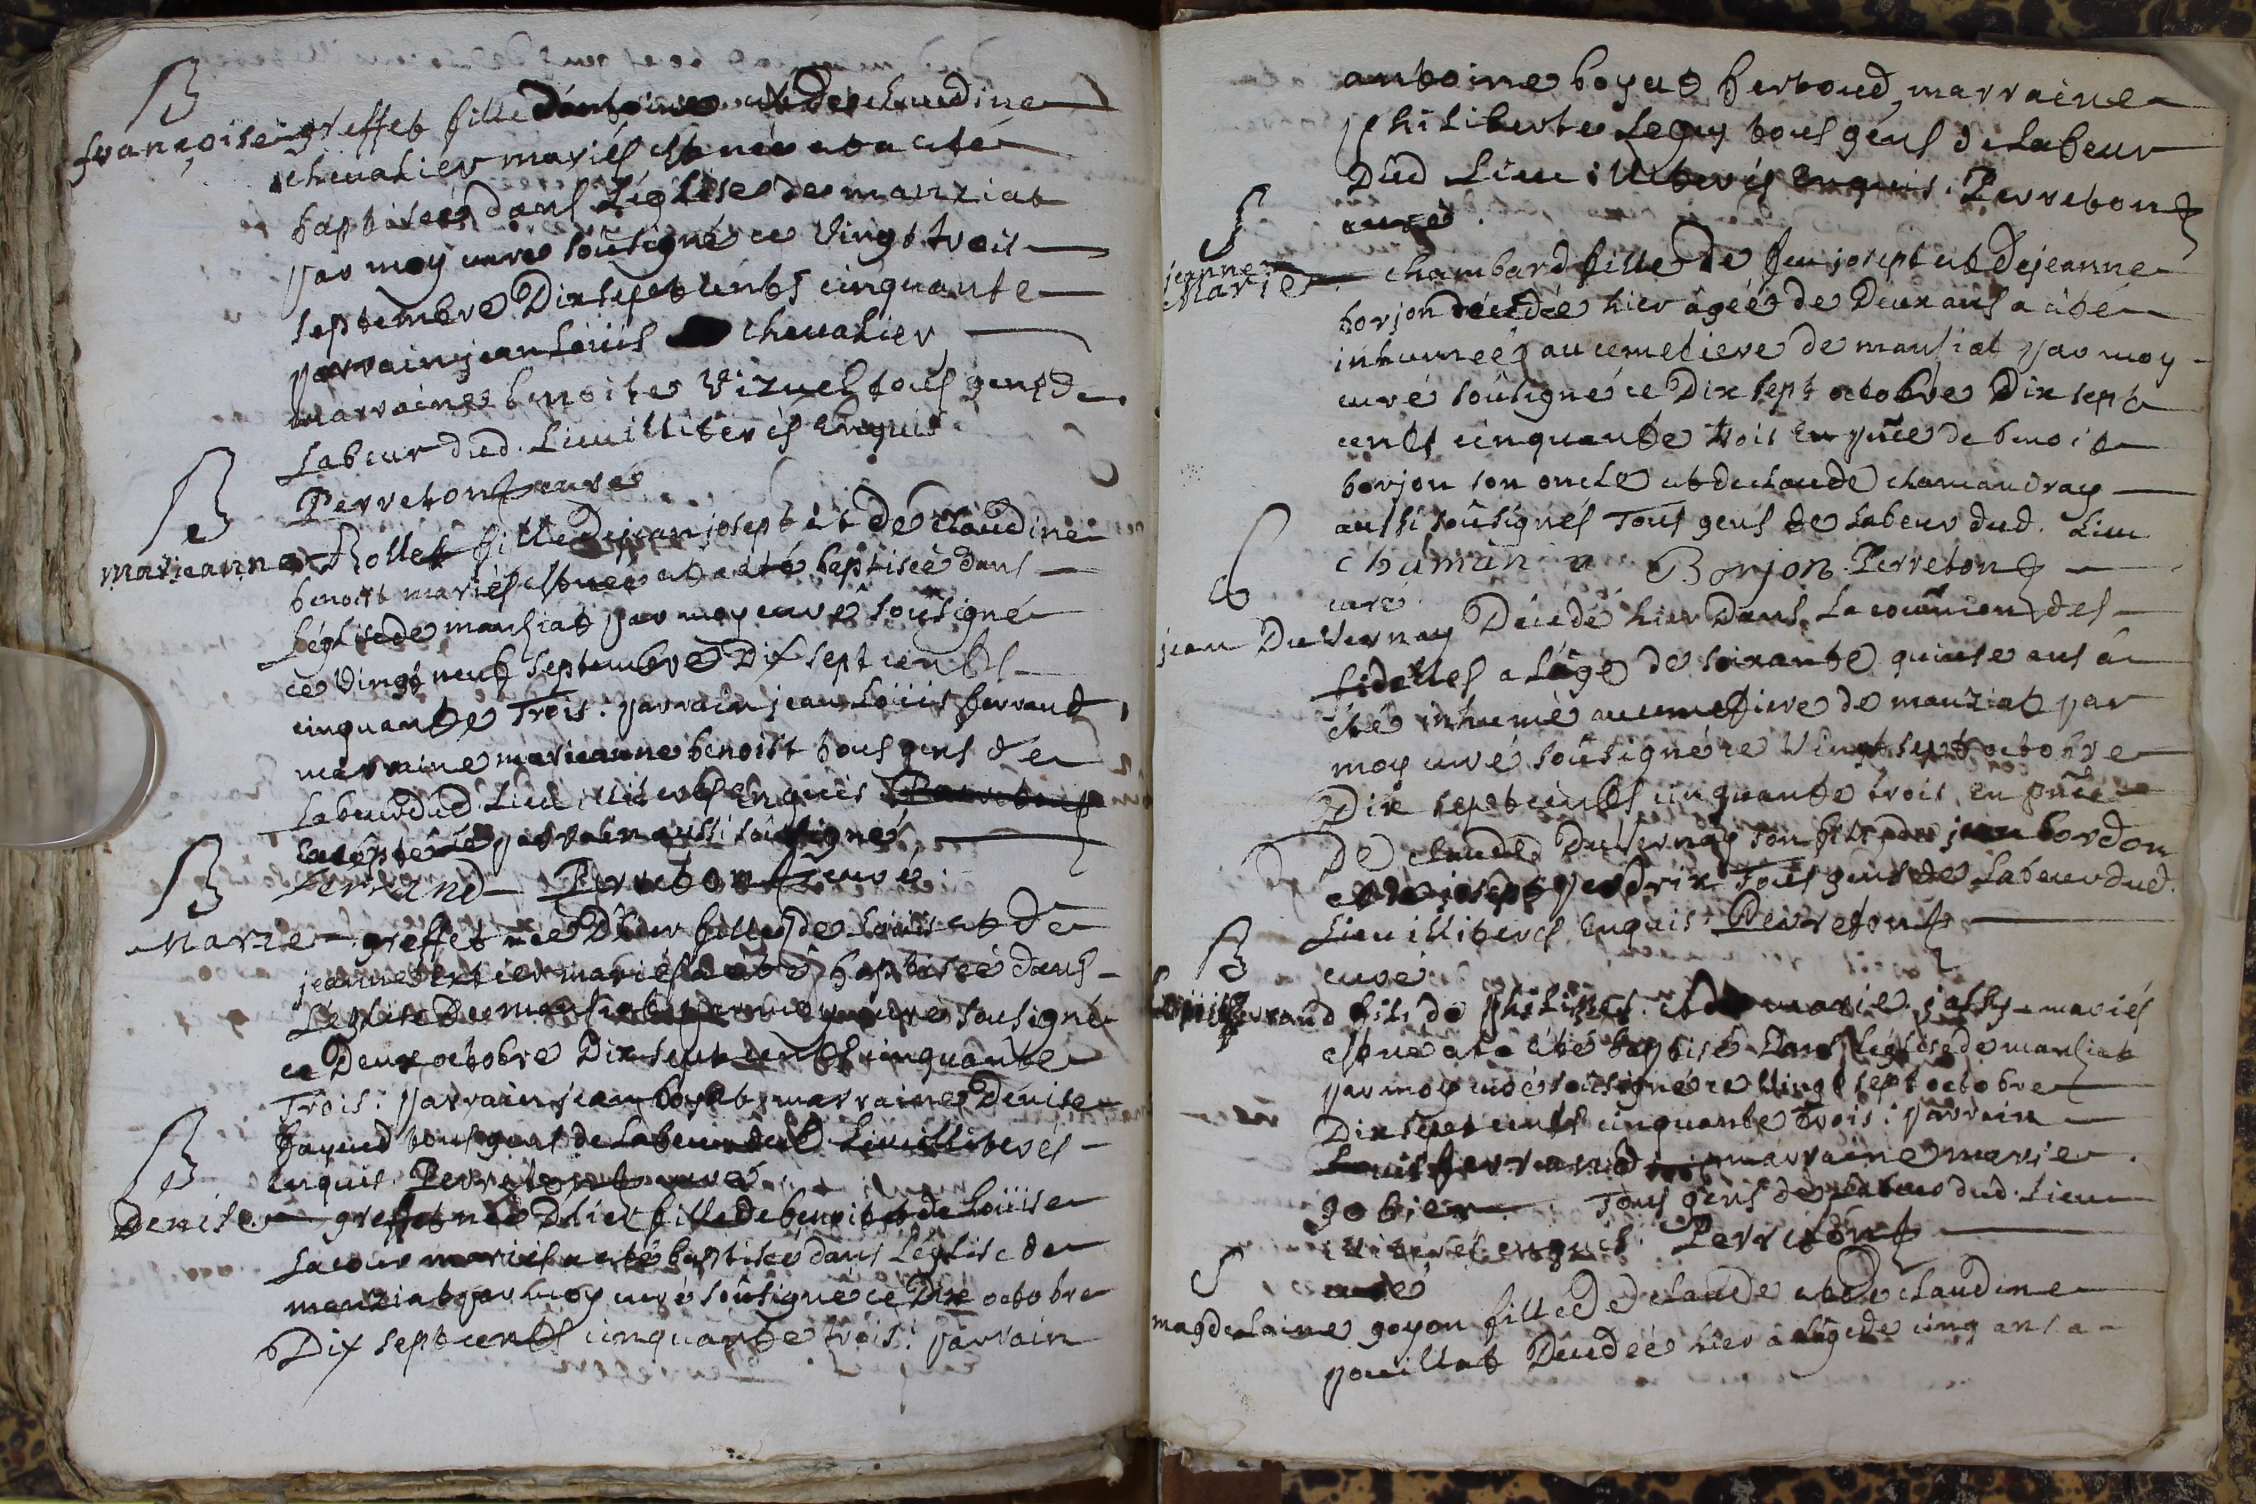 B
françoise greffet fille d'antoine et de claudine
chevalier mariés est née et a été
baptiseé dans L'église de manziat
par moy curé soûsigné ce vingt trois
septembre Dix sept cents cinquante
parrain jean Loüis chevalier
marraine benoite Vizuel tous gens de
Labeur dud. Lieu illiterés Enquis
Perreton curé
B
marieanne Rollet fille de jean josept et de claudine
benoist mariés est née et a été baptiseè dans
Léglise de manziat par moy curé soûsigné
ce vingt neuf septembre Dix sept cents
cinquante Trois: parrain jean Loüis ferrand
marraine marieanne benoist tous gens de
Labeur dud. Lieu illiterés Enquis
Excepté le parrain aussi soûsigné
ferrand Perreton curé
B
Marie greffet née D'hier fille de Loüis et de
jeanne tixier mariés a été baptiseé dans
L'église de manziat par moy curé sousigné
ce Deux octobre Dix sept cents cinquante
Trois: parrain jean boyat marraine Denise
fayaud tous gens de Labeur dud. Lieu illiterés
enquis Perreton curé
B
Denise greffet née D'hier fille de benoit et de Loüise
Lacour mariés a eté baptiseé dans L'église de
manziat par moy curé soûsigné ce Dix octobre
Dix sept cents cinquante trois: parrain
antoine boyat bertoud, marraine
philiberte Leguy tous gens de Labeur
Dud Lieu illiterés Enquis. Perreton
curé.
S
jeanne
Marie chambard fille de feu josept et de jeanne
borjon décédée hier âgéé de Deux ans a été
inhumeé au cemetiere de manziat par moy
curé soûsigné ce Dix sept octobre Dix sept
cents cinquante trois En pñce de benoit
borjon son oncle et de claude chamandray
aussi soûsignés Tous gens de Labeur dud. Lieu
Borjon. Perreton
curé
jean Duvernay Décédé hier Dans La coūnion des
fidelles a L'âge de soixante quinse ans a
été inhumé au cemetiere de manziat par
moy curé soûsigné ce vingt sept octobre
Dix sept cents cinquante trois en pñce
De claude Duvernay son fils de jean bordon
et de josept perdrix Tous gens de Labeur dud.
Lieu illiterés Enquis Perreton
curé
B
Loüis ferrand fils de philippe et de marie mariés
est né et a été baptisé Dans L'église de manziat
par moy curé soûsigné ce Vingt sept octobre
Dix sept cents cinquante Trois: parrain
Louis ferrand marraine marie
gobier Tous gens de Labeur dud. Lieu
illiterés enquis Perreton
curé
S
magdelaine goyon fille de claude et de claudine
pouillat Décedée hier à L'âge de cinq ans a